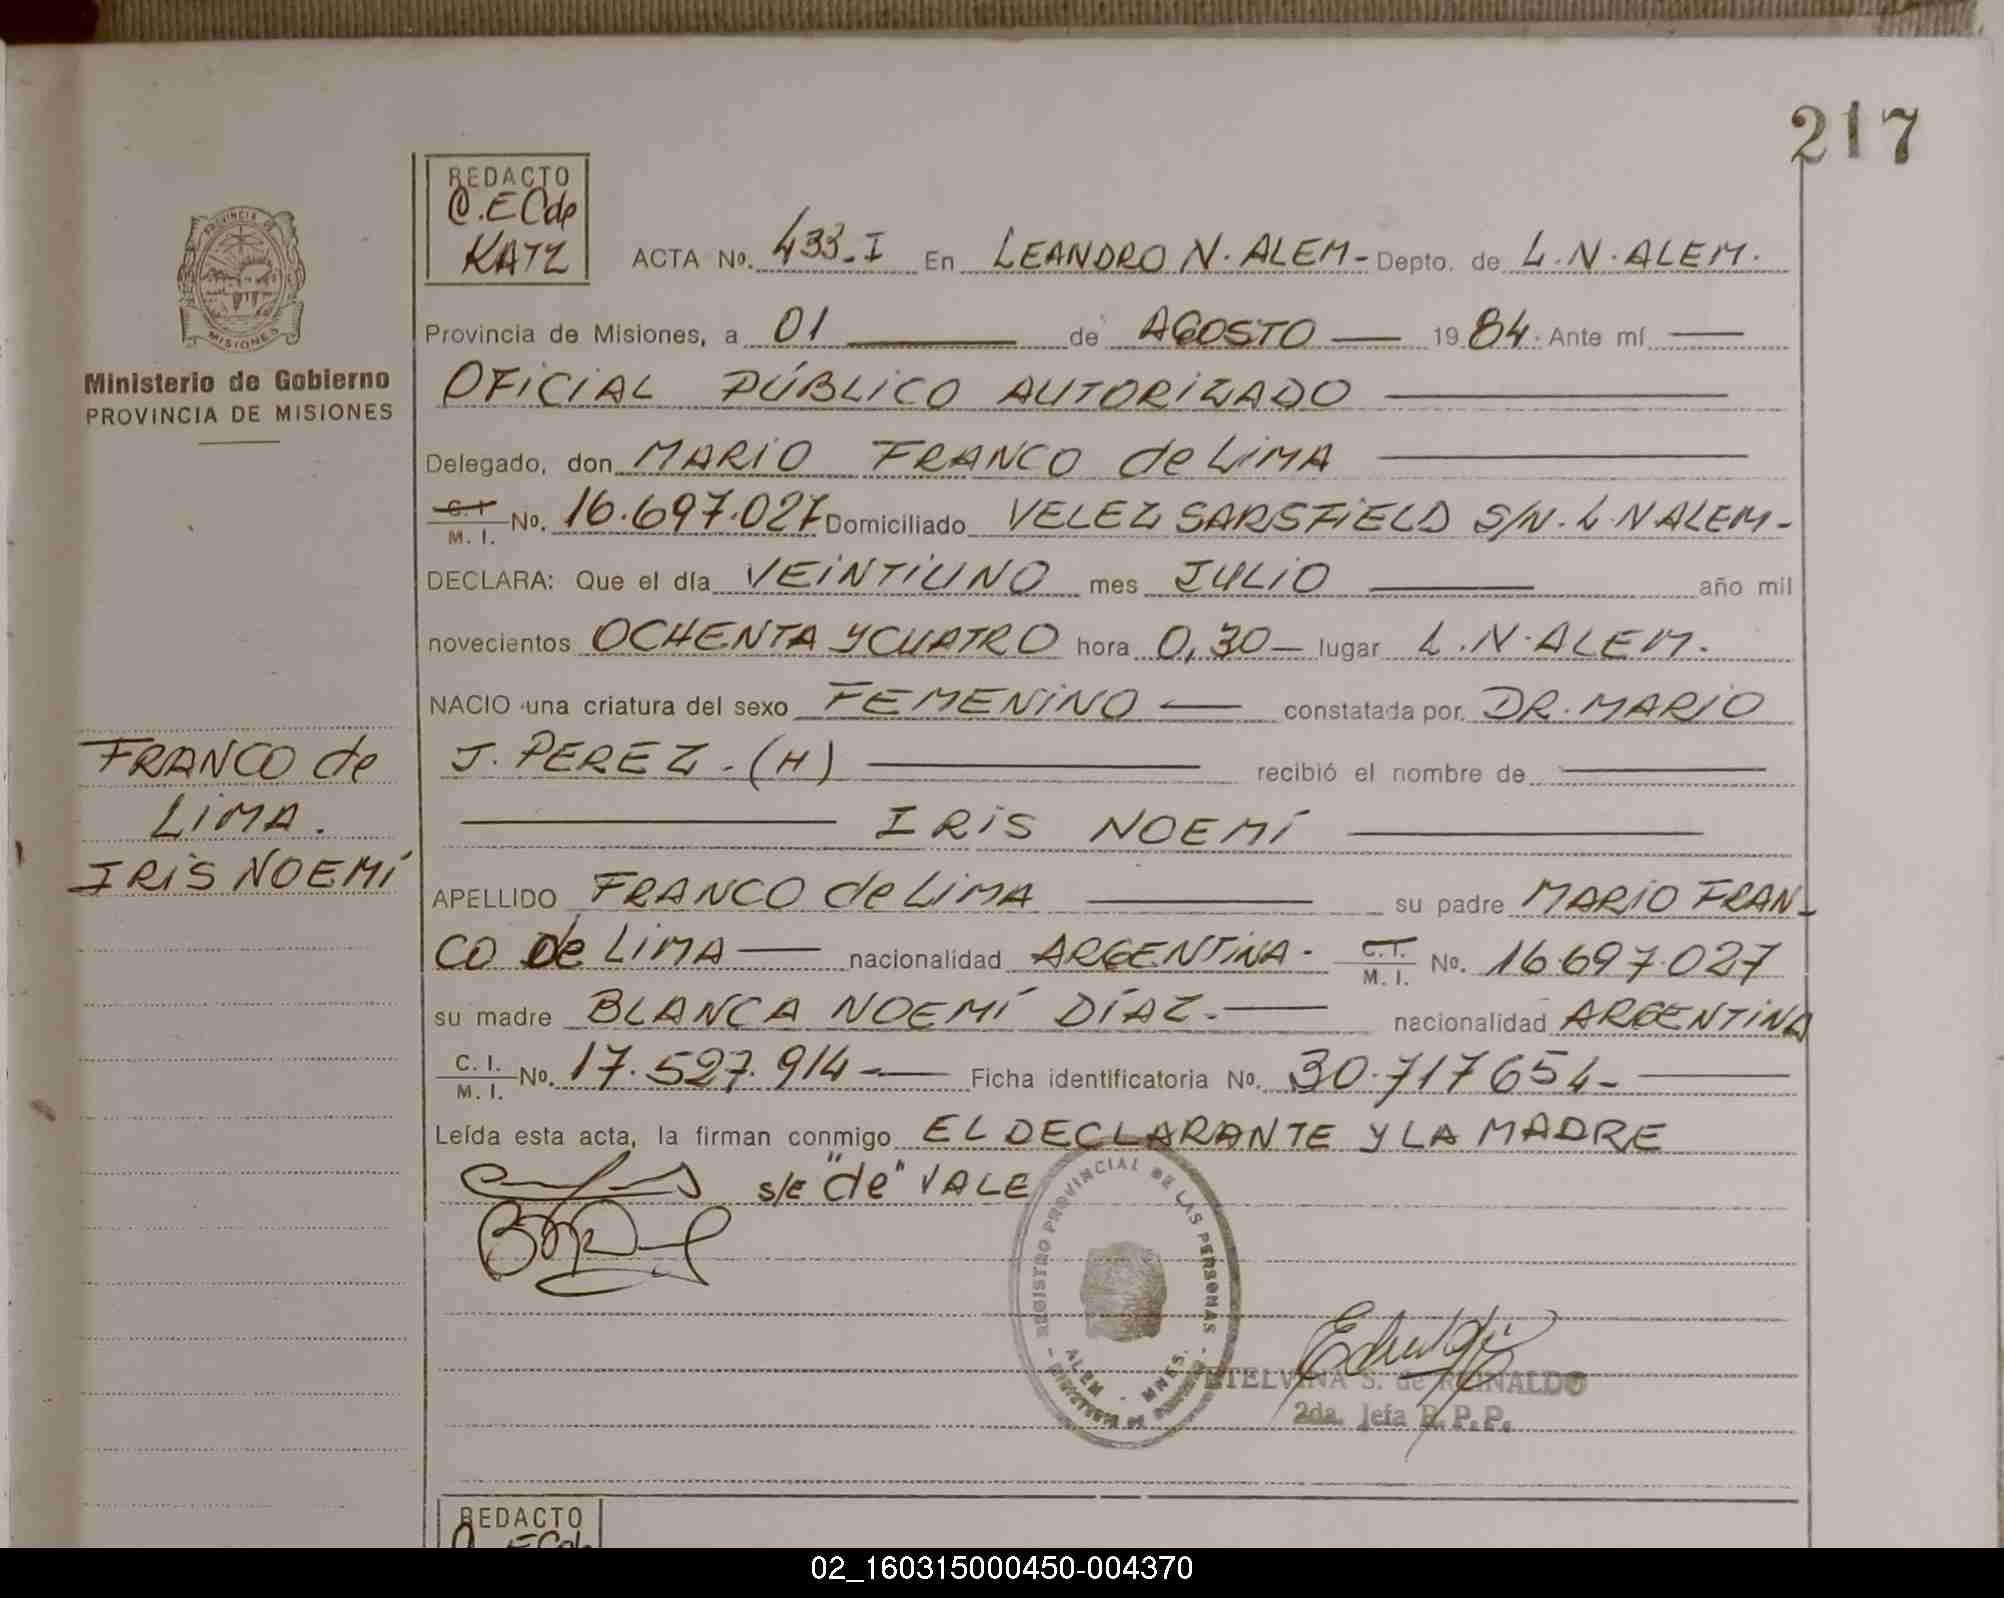 217
REDACTO
C.EC de
KATZ
PROVINCIA DE
MISIONES
Ministerio de Gobierno
PROVINCIA DE MISIONES
ACTA No. 433-I En LEANDRO N. ALEM - Depto. de L.N. ALEM.
Provincia de Misiones, a 01 de AGOSTO 1984. Ante mí
OFICIAL PÚBLICO AUTORIZADO
Delegado, don MARIO FRANCO de LIMA
C. I. M. I. No. 16.697.027 Domiciliado VELEZ SARSFIELD S/N. L.N ALEM -
DECLARA: Que el día VEINTIUNO mes JULIO año mil
novecientos OCHENTA Y CUATRO hora 0,30 - lugar L.N. ALEM.
NACIO una criatura del sexo FEMENINO constatada por DR. MARIO
J. PEREZ. (H) recibió el nombre de
IRIS NOEMÍ
FRANCO de
LIMA.
IRIS NOEMÍ
APELLIDO FRANCO de LIMA su padre MARIO FRAN-
CO de LIMA nacionalidad ARGENTINA. C. I. M. I. No. 16.697.027
su madre BLANCA NOEMÍ DÍAZ. nacionalidad ARGENTINA
C. I. M. I. No. 17.527.914 - Ficha identificatoria No. 30.717654-
Leída esta acta, la firman conmigo EL DECLARANTE Y LA MADRE
s/E "de" VALE
REGISTRO PROVINCIAL DE LAS PERSONAS
ALEM - MNES.
ETELVINA S. de REINALDO
2da. Jefa R.P.P.
REDACTO
02_160315000450-004370